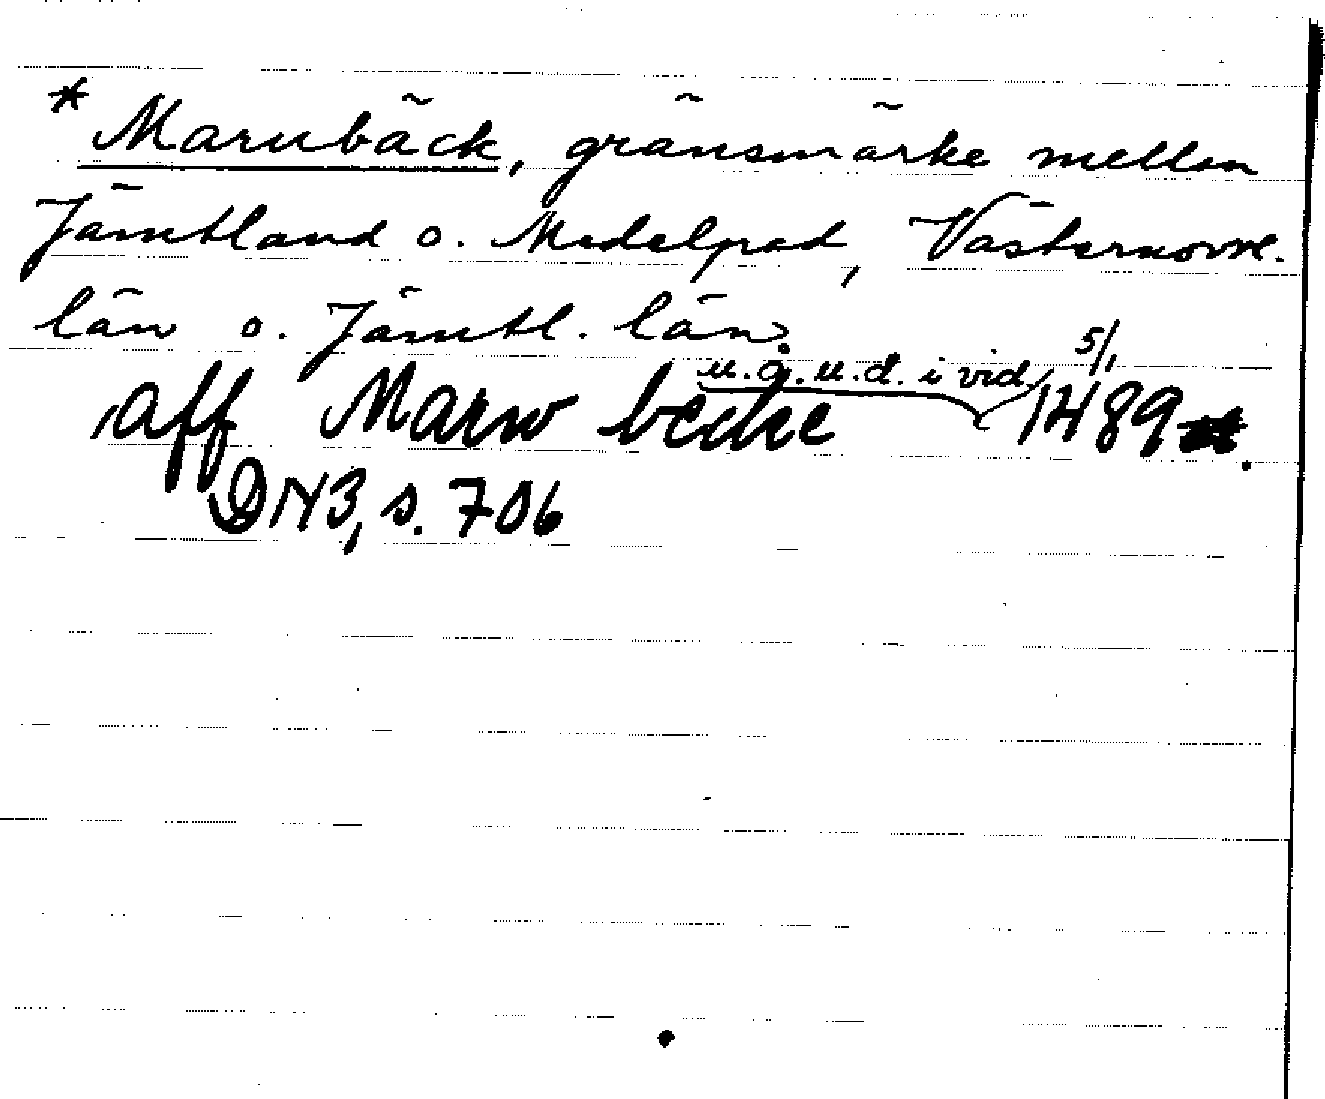 * Marubäck, gränsmärke mellan
Jämtland o. Medelpad, Västernorrl.
län o. Jämtl. län.
u.å.u.d. i vid. 5/1
aff Marw becke 1489.
DN3, s. 706